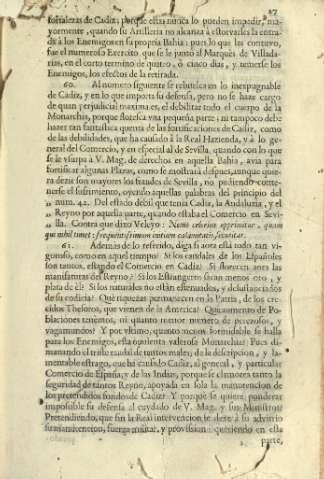 27
fortalezas de Cadiz, porque estas nunca lo pueden impedir, ma-
yormente, quando su Artilleria no alcanza à estorvarles la entra-
da à los Enemigos en su propria Bahia: pues lo que les contuvo,
fue el numeroso Exercito que se le juntò al Marquès de Villada-
rias, en el corto termino de quatro, ò cinco dias, y temerse los
Enemigos, los efectos de la retirada.
60. Al numero siguiente se relata en lo inexpugnable
de Cadiz, y en lo que importa su defensa, pero no se haze cargo
de quan perjudicial maxima es, el debilitar todo el cuerpo de la
Monarchia, porque florezca una pequeña parte; ni tampoco debe
hazer tan fantastica quenta de las fortificaciones de Cadiz, como
de las debilidades, que ha causado à la Real Hazienda, y à lo ge-
neral del Comercio, y en especial al de Sevilla, quando con lo que
se le usurpa à V. Mag. de derechos en aquella Bahia, avia para
fortificar algunas Plazas, como se mostrarà despues, aunque quie-
ra dezir son mayores los fraudes de Sevilla, no pudiendo conte-
nerse el sufrimiento, oyendo aquellas palabras del principio del
,, num. 42. Del estado debil que tenia Cadiz, la Andalucia, y el
,, Reyno por aquella parte, quando estaba el Comercio en Sevi-
,, lla. Contra que dixo Veleyo: Nemo celerius opprimitur, quam
qui nihil timet: frequentissimum initium calamitatis securitas.
61. Ademàs de lo referido, diga si aora està todo tan vi-
goroso, como en aquel tiempo? Si los caudales de los Españoles
son tantos, estando el Comercio en Cadiz? Si florecen aora las
manifacturas del Reyno? Si los Estrangeros sacan menos oro, y
plata de èl? Si los naturales no estàn estenuados, y desustanciados
de su codicia? Què riquezas permanecen en la Patria, de los cre-
cidos Thesoros, que vienen de la America? Què aumento de Po-
blaciones tenemos, ni quanto menor numero de perezosos, y
vagamundos? Y por ultimo, quanto menos formidable se halla
para los Enemigos, esta opulenta valerosa Monarchia? Pues di-
manando el triste caudal de tantos males, de la descripcion, y la-
mentable estrago, que ha causado Cadiz, al general, y particular
Comercio de España, y de las Indias, porque se clamorea tanto la
seguridad de tantos Reyno, apoyada en sola la manutencion de
los pretendidos fondos de Cadiz? Y porque se quiere ponderar
impossible su defensa al cuydado de V. Mag. y sus Ministros?
Pretendiendo, que sin la Real intervencion, se dexe à su advitrio
su mantenerlos, fuerça militar, y provission: queriendo en esta
parte,